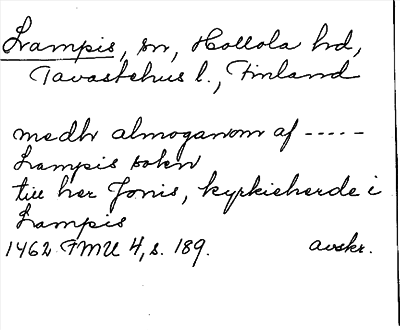 Lampis, sn, Hollola hd,
Tavastehus l., Finland
medh almoganom af -----
Lampis sokn
till her Jonis, kyrkieherde i
Lampis
1462 FMU 4, s. 189. avskr.